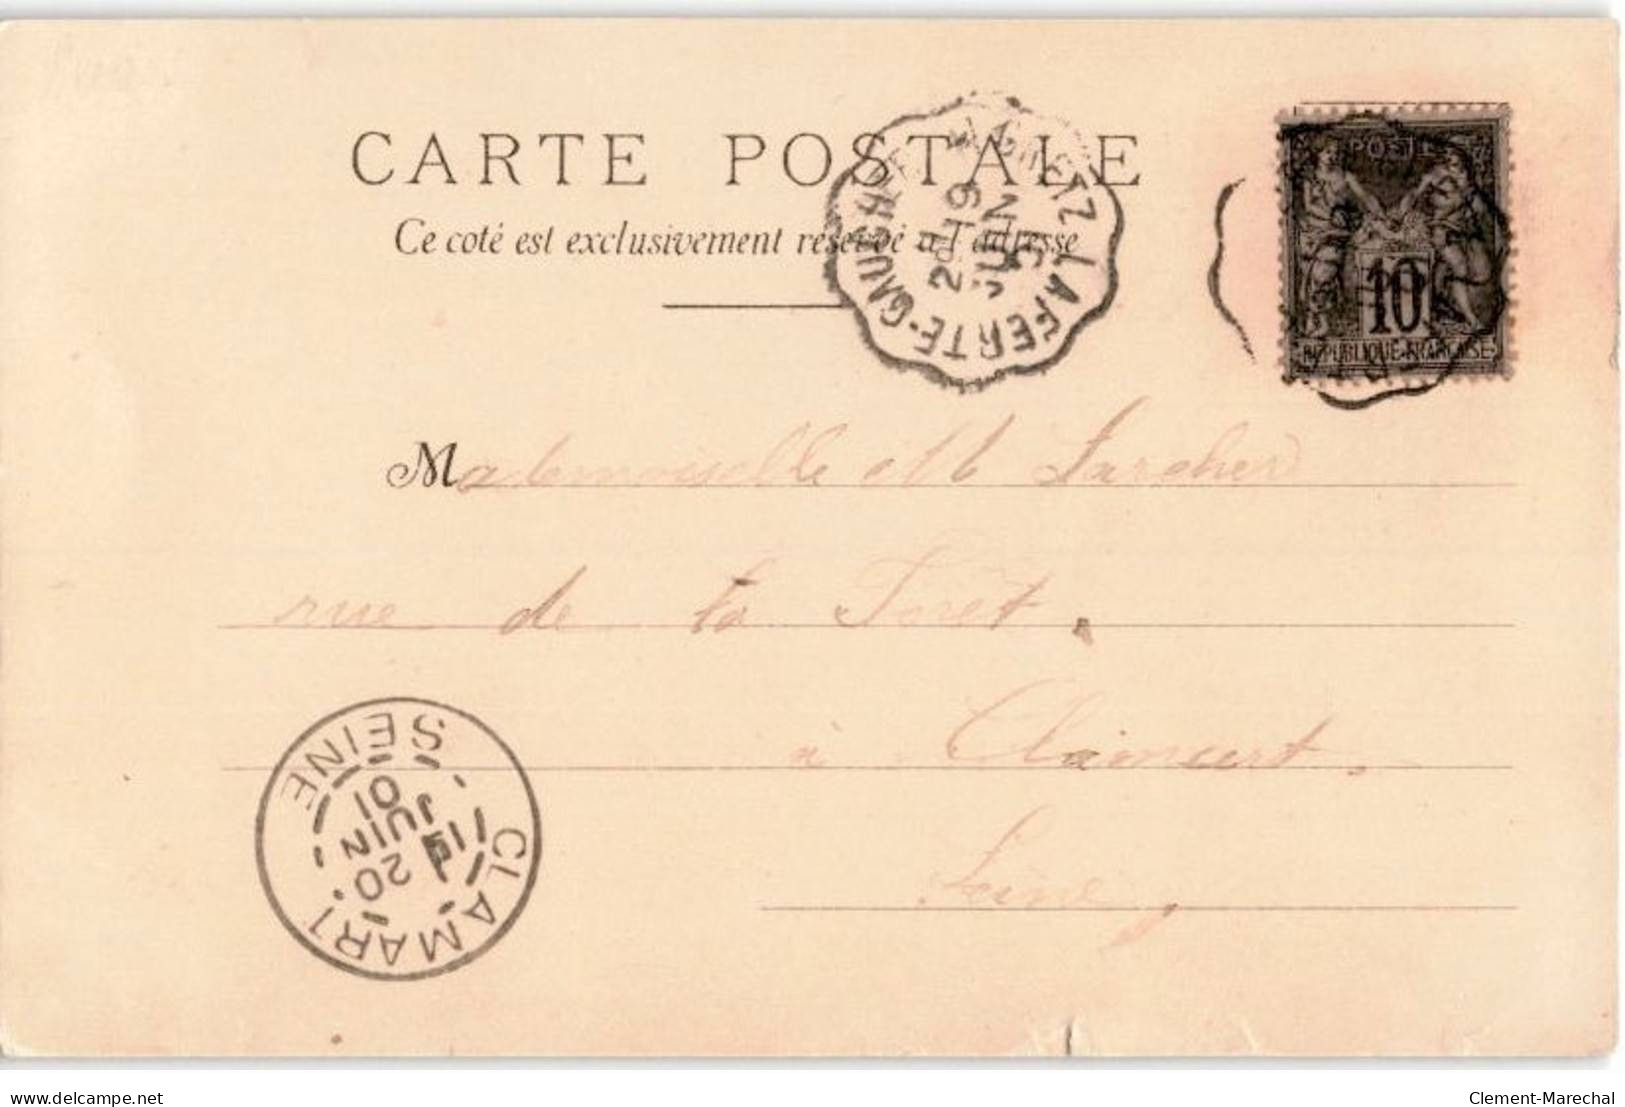 CARTE POSTALE
Ce coté est exclusivement réservé à l'adresse
POSTES
10
REPUBLIQUE FRANÇAISE
LA FERTE-GAUCHER
2E
19
JUIN
01
Mademoiselle M Larcher
rue de la Forêt
à Clamart.
Seine
CLAMART.
SEINE
20
JUIN
01
delcampe.net
Clement-Marechal